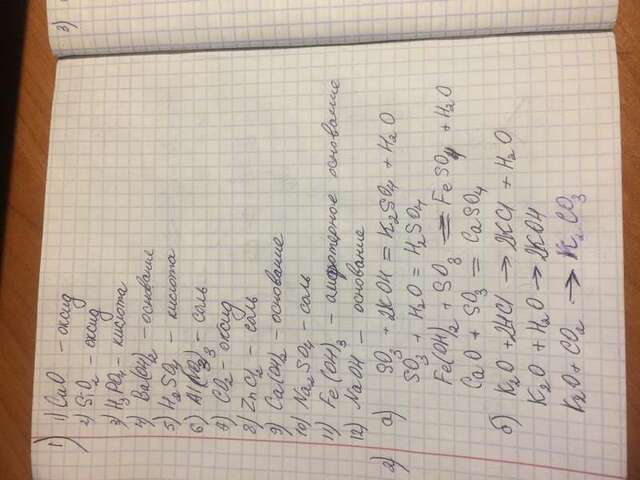 1) 1) CaO – оксид
2) SiO2 – оксид
3) H3PO4 – кислота
4) Ba(OH)2 – основание
5) H2SO4 – кислота
6) Al(NO3)3 – соль
7) CO2 – оксид
8) ZnCl2 – соль
9) Ca(OH)2 – основание
10) Na2SO4 – соль
11) Fe(OH)3 – амфотерное основание
12) NaOH – основание
2) а) SO3 + 2KOH = K2SO4 + H2O
SO3 + H2O = H2SO4
Fe(OH)2 + SO3 = FeSO4 + H2O
CaO + SO3 = CaSO4
б) K2O + 2HCl → 2KCl + H2O
K2O + H2O → 2KOH
K2O + CO2 → K2CO3
3)